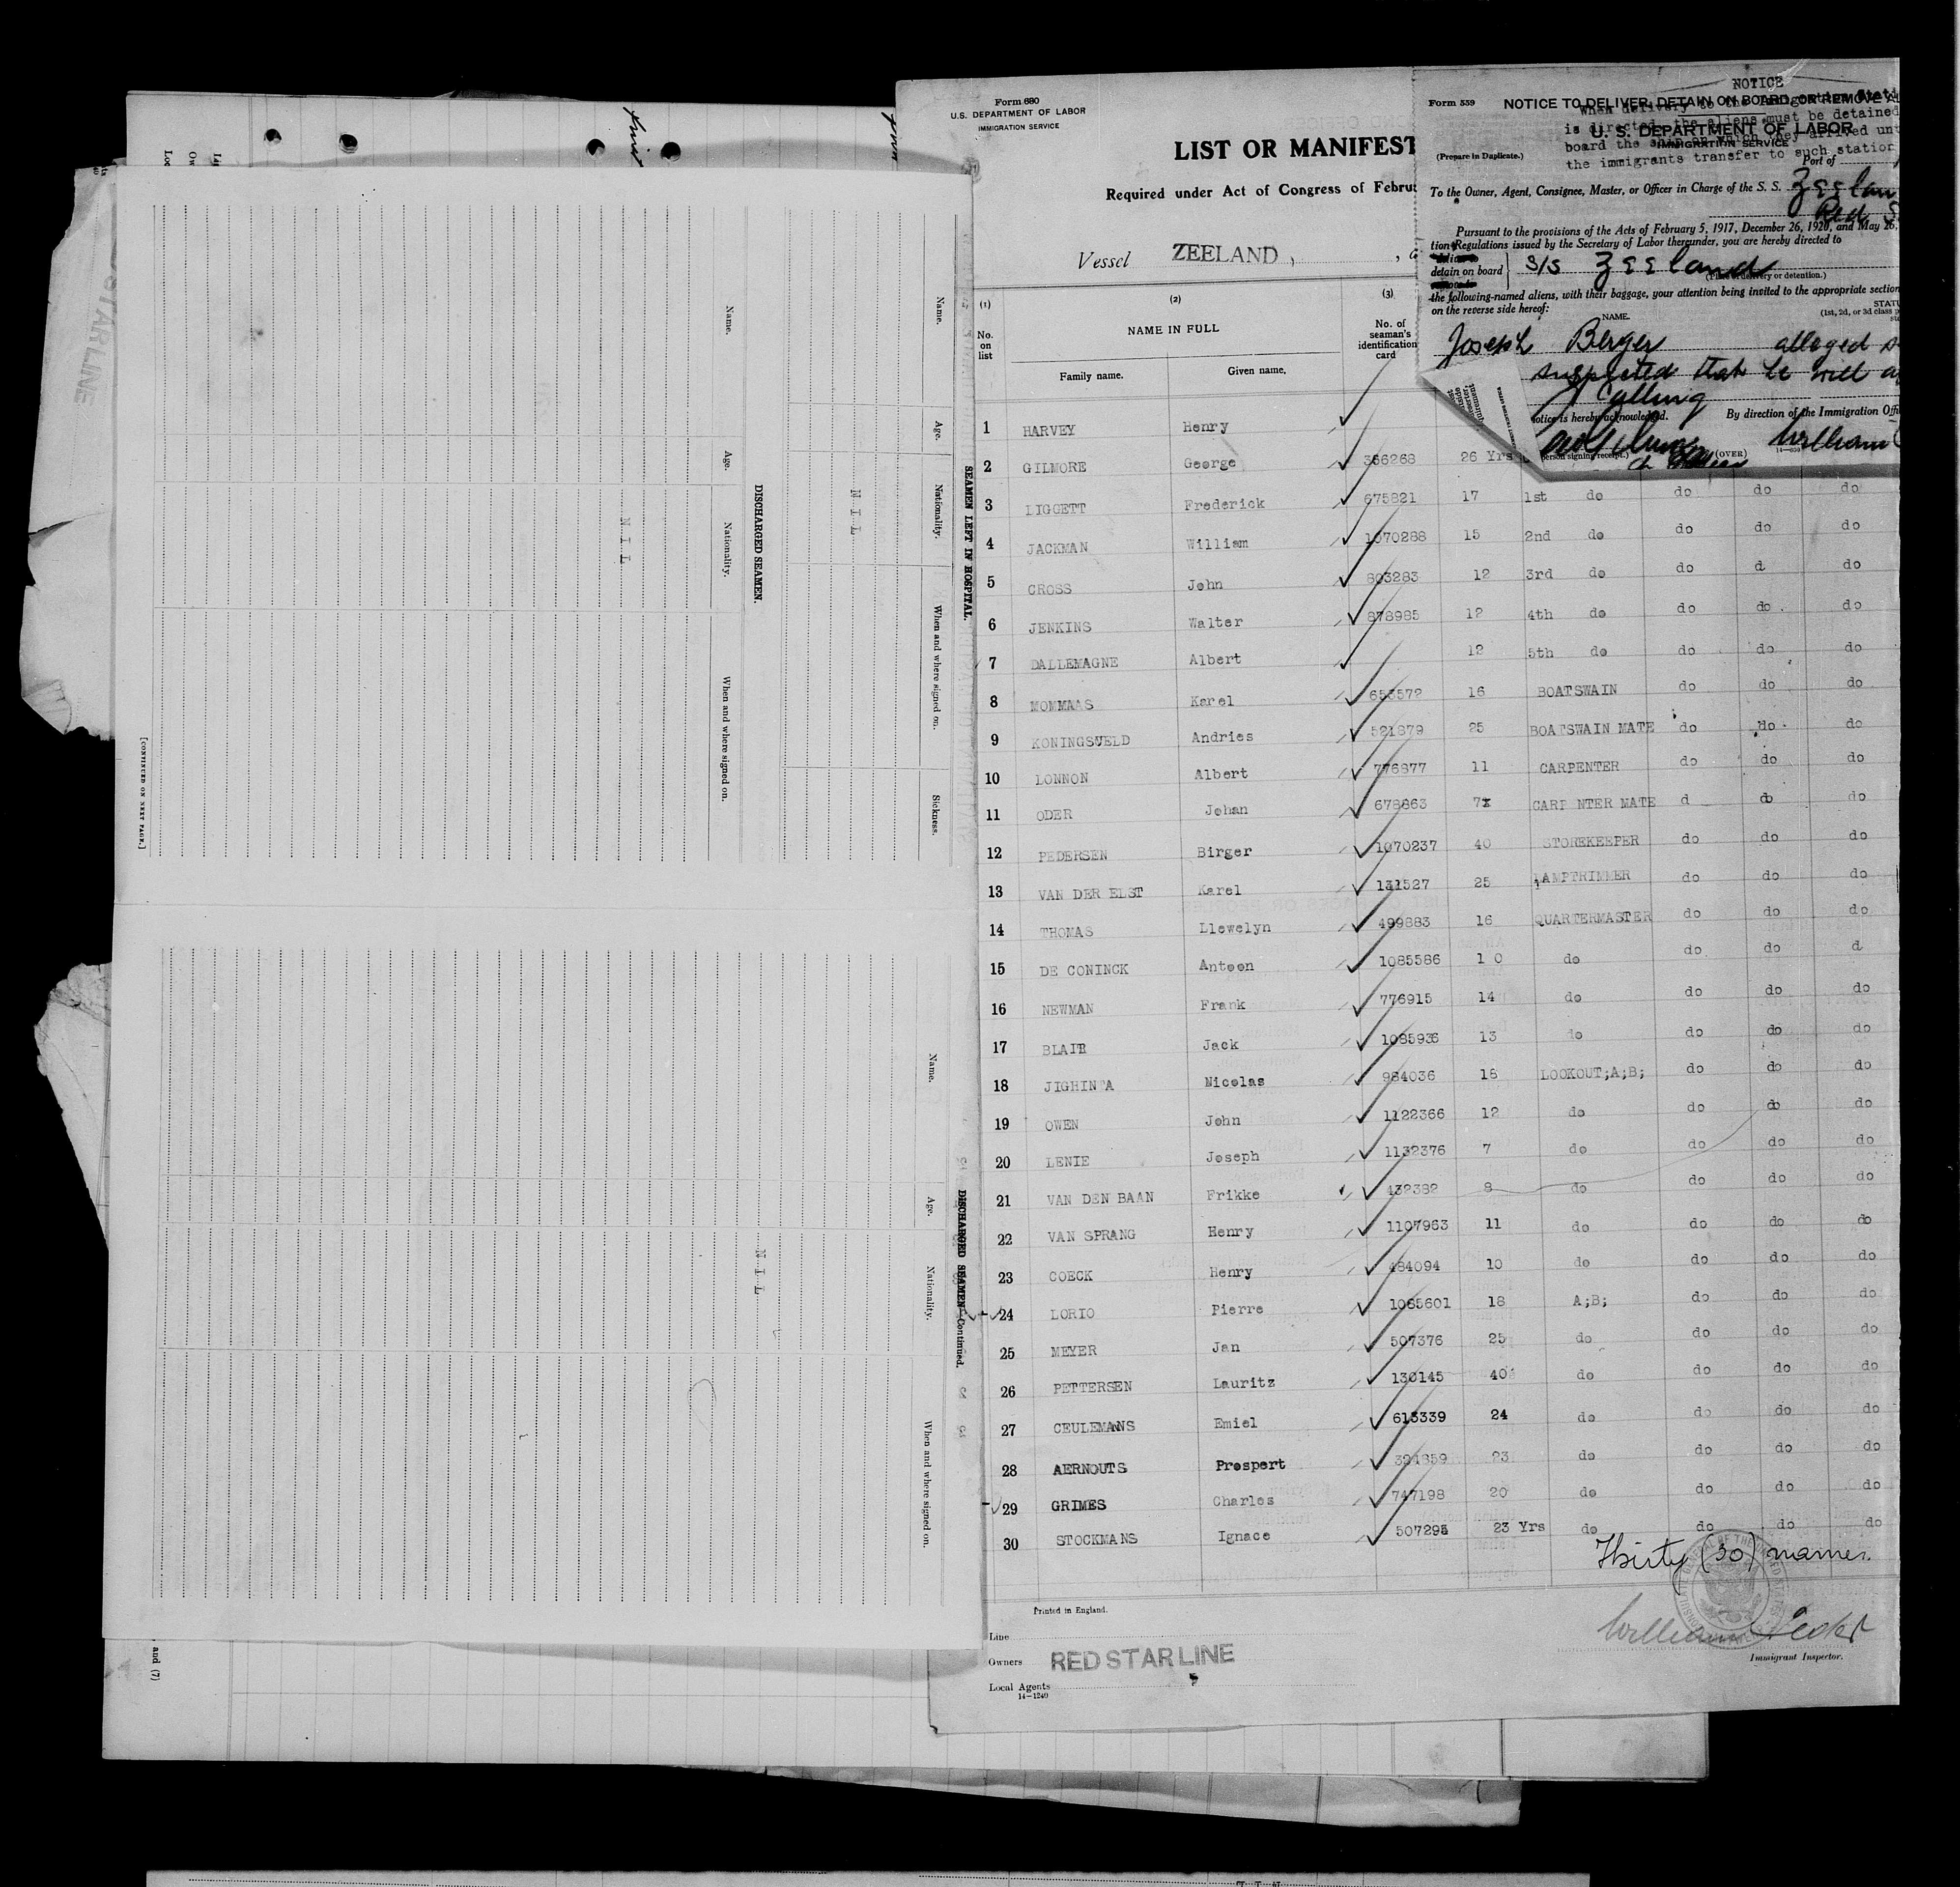 STAR LINE
SEAMEN LEFT IN HOSPITAL.
Name.
Age.
Nationality.
When and where signed on.
Sickness.
NIL
DISCHARGED SEAMEN.
Name.
Age.
Nationality.
When and where signed on.
NIL
[CONTINUED ON NEXT PAGE.]
DISCHARGED SEAMEN—Continued.
Name.
Age.
Nationality.
When and where signed on.
NIL
and (7)
Form 680
U.S. DEPARTMENT OF LABOR
IMMIGRATION SERVICE
LIST OR MANIFEST
Required under Act of Congress of Febru
Vessel ZEELAND,
(1) (2) (3)
No. on list
NAME IN FULL
No. of seaman's identification card
Family name. Given name.
1 HARVEY Henry
2 GILMORE George 356268 26 Yrs
3 LIGGETT Frederick 675821 17 1st do do do do
4 JACKMAN William 1070288 15 2nd do do do do
5 CROSS John 803283 12 3rd do do d do
6 JENKINS Walter 878985 12 4th do do do. do
7 DALLEMAGNE Albert 12 5th do do do do
8 MOMMAAS Karel 653572 16 BOATSWAIN do do do
9 KONINGSVELD Andries 521879 25 BOATSWAIN MATE do do do
10 LONNON Albert 776877 11 CARPENTER do do do
11 ODER Johan 678863 7 CARP NTER MATE d do do
12 PEDERSEN Birger 1070237 40 STOREKEEPER do do do
13 VAN DER ELST Karel 131527 25 LAMPTRIMMER do do do
14 THOMAS Llewelyn 499883 16 QUARTERMASTER do do do
15 DE CONINCK Antoon 1085586 1 0 do do do d
16 NEWMAN Frank 776915 14 do do do do
17 BLAIR Jack 1085936 13 do do do do
18 JIGHINTA Nicolas 984036 18 LOOKOUT;A;B; do do do
19 OWEN John 1122366 12 do do do do
20 LENIE Joseph 1132376 7 do do do do
21 VAN DEN BAAN Frikke 432382 8 do do do do
22 VAN SPRANG Henry 1107963 11 do do do do
23 COECK Henry 484094 10 do do do do
24 LORIO Pierre 1085601 18 A;B; do do do
25 MEYER Jan 507376 25 do do do do
26 PETTERSEN Lauritz 130145 40 do do do do
27 CEULEMANS Emiel 613339 24 do do do do
28 AERNOUTS Prospert 324859 23 do do do do
29 GRIMES Charles 747198 20 do do do do
30 STOCKMANS Ignace 507295 23 Yrs do do do do
Thirty (30) names.
Immigrant Inspector.
Printed in England.
Line
Owners RED STAR LINE
Local Agents
14—1240
NOTICE
When delivery to the Immigration Stati
is directed, the aliens must be detained
board the ship on which they arrived unt
the immigrants transfer to such station
Form 559 NOTICE TO DELIVER, DETAIN ON BOARD, OR REMOVE AL
U. S. DEPARTMENT OF LABOR
IMMIGRATION SERVICE
(Prepare in Duplicate.)
Port of
To the Owner, Agent, Consignee, Master, or Officer in Charge of the S. S. Zeelan
Red S
Pursuant to the provisions of the Acts of February 5, 1917, December 26, 1920, and May 26,
tion Regulations issued by the Secretary of Labor thereunder, you are hereby directed to
detain on board S/S Zeeland
(Place of delivery or detention.)
the following-named aliens, with their baggage, your attention being invited to the appropriate section
on the reverse side hereof:
NAME.
STATU
(1st, 2d, or 3d class p
Joseph Berger alleged s
suspected that he will a
calling
notice is hereby acknowledged. By direction of the Immigration Offi
William
person signing receipt.) (OVER)